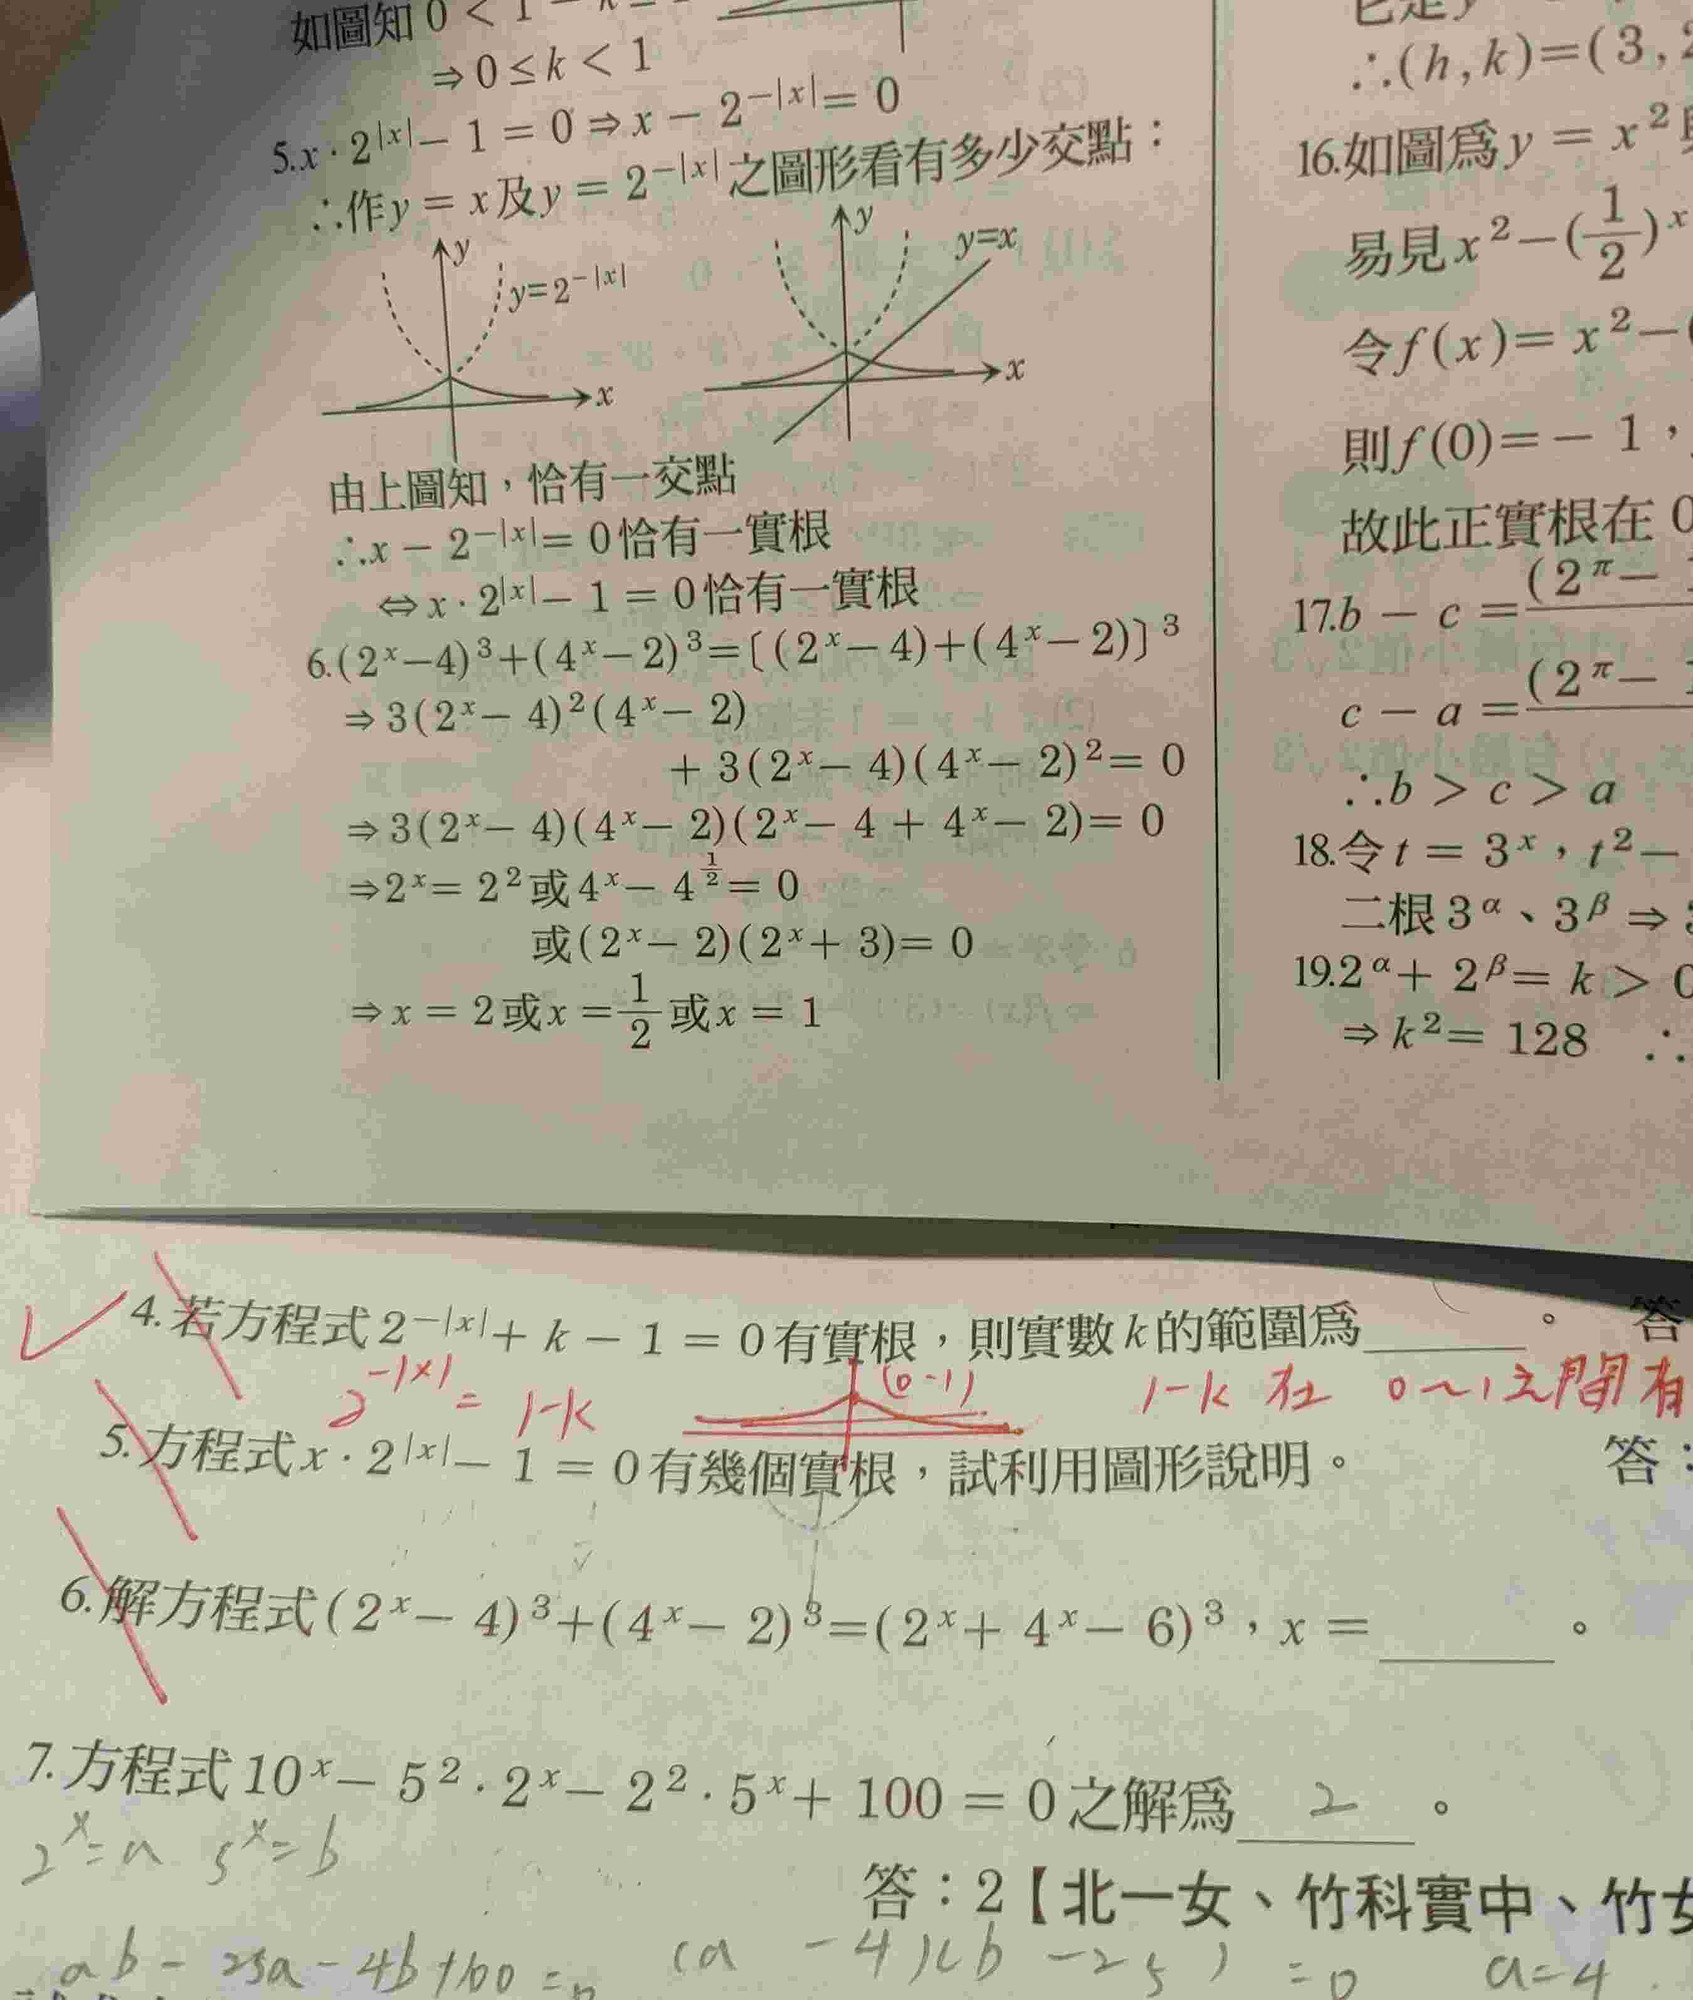 如圖知 0 < 1 -
⇒ 0 ≤ k < 1
5. x · 2^{|x|} - 1 = 0 ⇒ x - 2^{-|x|} = 0
∴作 y = x 及 y = 2^{-|x|} 之圖形看有多少交點：
y
y=2^{-|x|}
x
y
y=x
x
由上圖知，恰有一交點
∴x - 2^{-|x|} = 0 恰有一實根
⇔ x · 2^{|x|} - 1 = 0 恰有一實根
6. (2^x - 4)^3 + (4^x - 2)^3 = [(2^x - 4) + (4^x - 2)]^3
⇒ 3(2^x - 4)^2(4^x - 2)
+ 3(2^x - 4)(4^x - 2)^2 = 0
⇒ 3(2^x - 4)(4^x - 2)(2^x - 4 + 4^x - 2) = 0
⇒ 2^x = 2^2 或 4^x - 4^{\frac{1}{2}} = 0
或 (2^x - 2)(2^x + 3) = 0
⇒ x = 2 或 x = \frac{1}{2} 或 x = 1
∴(h, k) = (3, 2
16. 如圖爲 y = x^2
易見 x^2 - (\frac{1}{2})^x
令 f(x) = x^2 -
則 f(0) = - 1，
故此正實根在 0
17. b - c = (2^π -
c - a = (2^π -
∴b > c > a
18. 令 t = 3^x，t^2 -
二根 3^α、3^β ⇒
19. 2^α + 2^β = k > 0
⇒ k^2 = 128 ∴
4. 若方程式 2^{-|x|} + k - 1 = 0 有實根，則實數 k 的範圍爲______。 答
2^{-|x|} = 1-k (0-1) 1-k 在 0~1之間有
5. 方程式 x · 2^{|x|} - 1 = 0 有幾個實根，試利用圖形說明。 答：
6. 解方程式 (2^x - 4)^3 + (4^x - 2)^3 = (2^x + 4^x - 6)^3，x = ______。
7. 方程式 10^x - 5^2 · 2^x - 2^2 · 5^x + 100 = 0 之解爲 2 。
2^x = a 5^x = b
答：2【北一女、竹科實中、竹女
ab - 25a - 4b + 100 = 0 (a - 4)(b - 25) = 0 a = 4